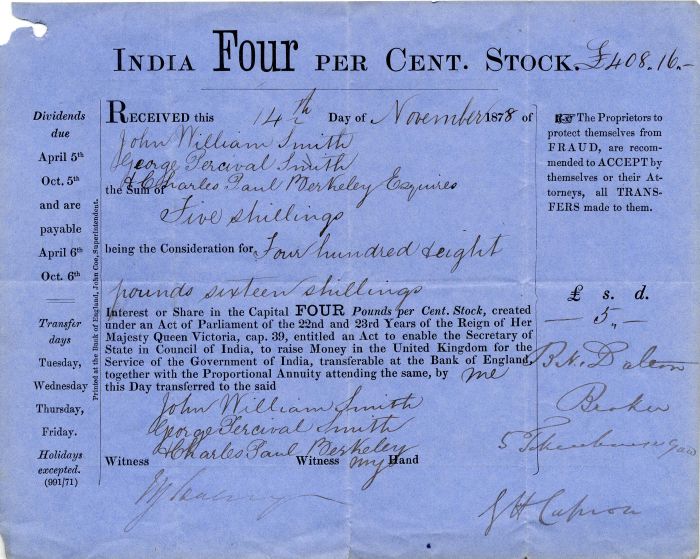 INDIA Four PER CENT. STOCK. £408.16.-
Dividends
due
April 5th
Oct. 5th
and are
payable
April 6th
Oct. 6th
Transfer
days
Tuesday,
Wednesday
Thursday,
Friday.
Holidays
excepted.
(991/71)
Printed at the Bank of England, John Coe, Superintendent.
RECEIVED this 14th Day of November 1878 of
John William Smith
George Percival Smith
& Charles Paul Berkeley Esquires
the Sum of
Five shillings
being the Consideration for Four hundred & eight
pounds sixteen shillings
Interest or Share in the Capital FOUR Pounds per Cent. Stock, created
under an Act of Parliament of the 22nd and 23rd Years of the Reign of Her
Majesty Queen Victoria, cap. 39, entitled an Act to enable the Secretary of
State in Council of India, to raise Money in the United Kingdom for the
Service of the Government of India, transferable at the Bank of England,
together with the Proportional Annuity attending the same, by me
this Day transferred to the said
John William Smith
George Percival Smith
& Charles Paul Berkeley
Witness Witness my Hand
☞ The Proprietors to
protect themselves from
FRAUD, are recom-
mended to ACCEPT by
themselves or their At-
torneys, all TRANS-
FERS made to them.
£ s. d.
— 5,, —
Dalton
Broker
5
G H Capron